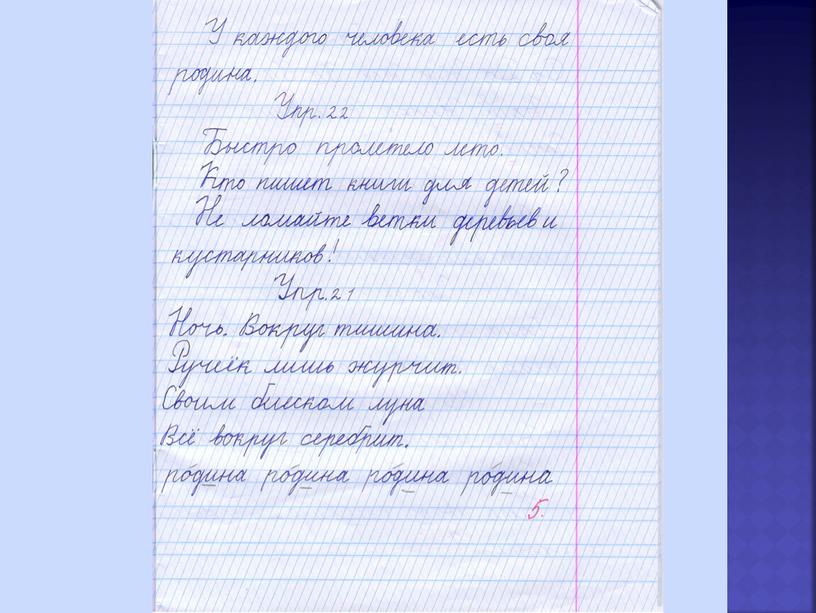 У каждого человека есть своя
родина.
Упр. 22
Быстро пролетело лето.
Кто пишет книги для детей?
Не ломайте ветки деревьев и
кустарников!
Упр. 21
Ночь. Вокруг тишина.
Ручеёк лишь журчит.
Своим блеском луна
Всё вокруг серебрит.
ро́дина ро́дина ро́дина ро́дина
5.